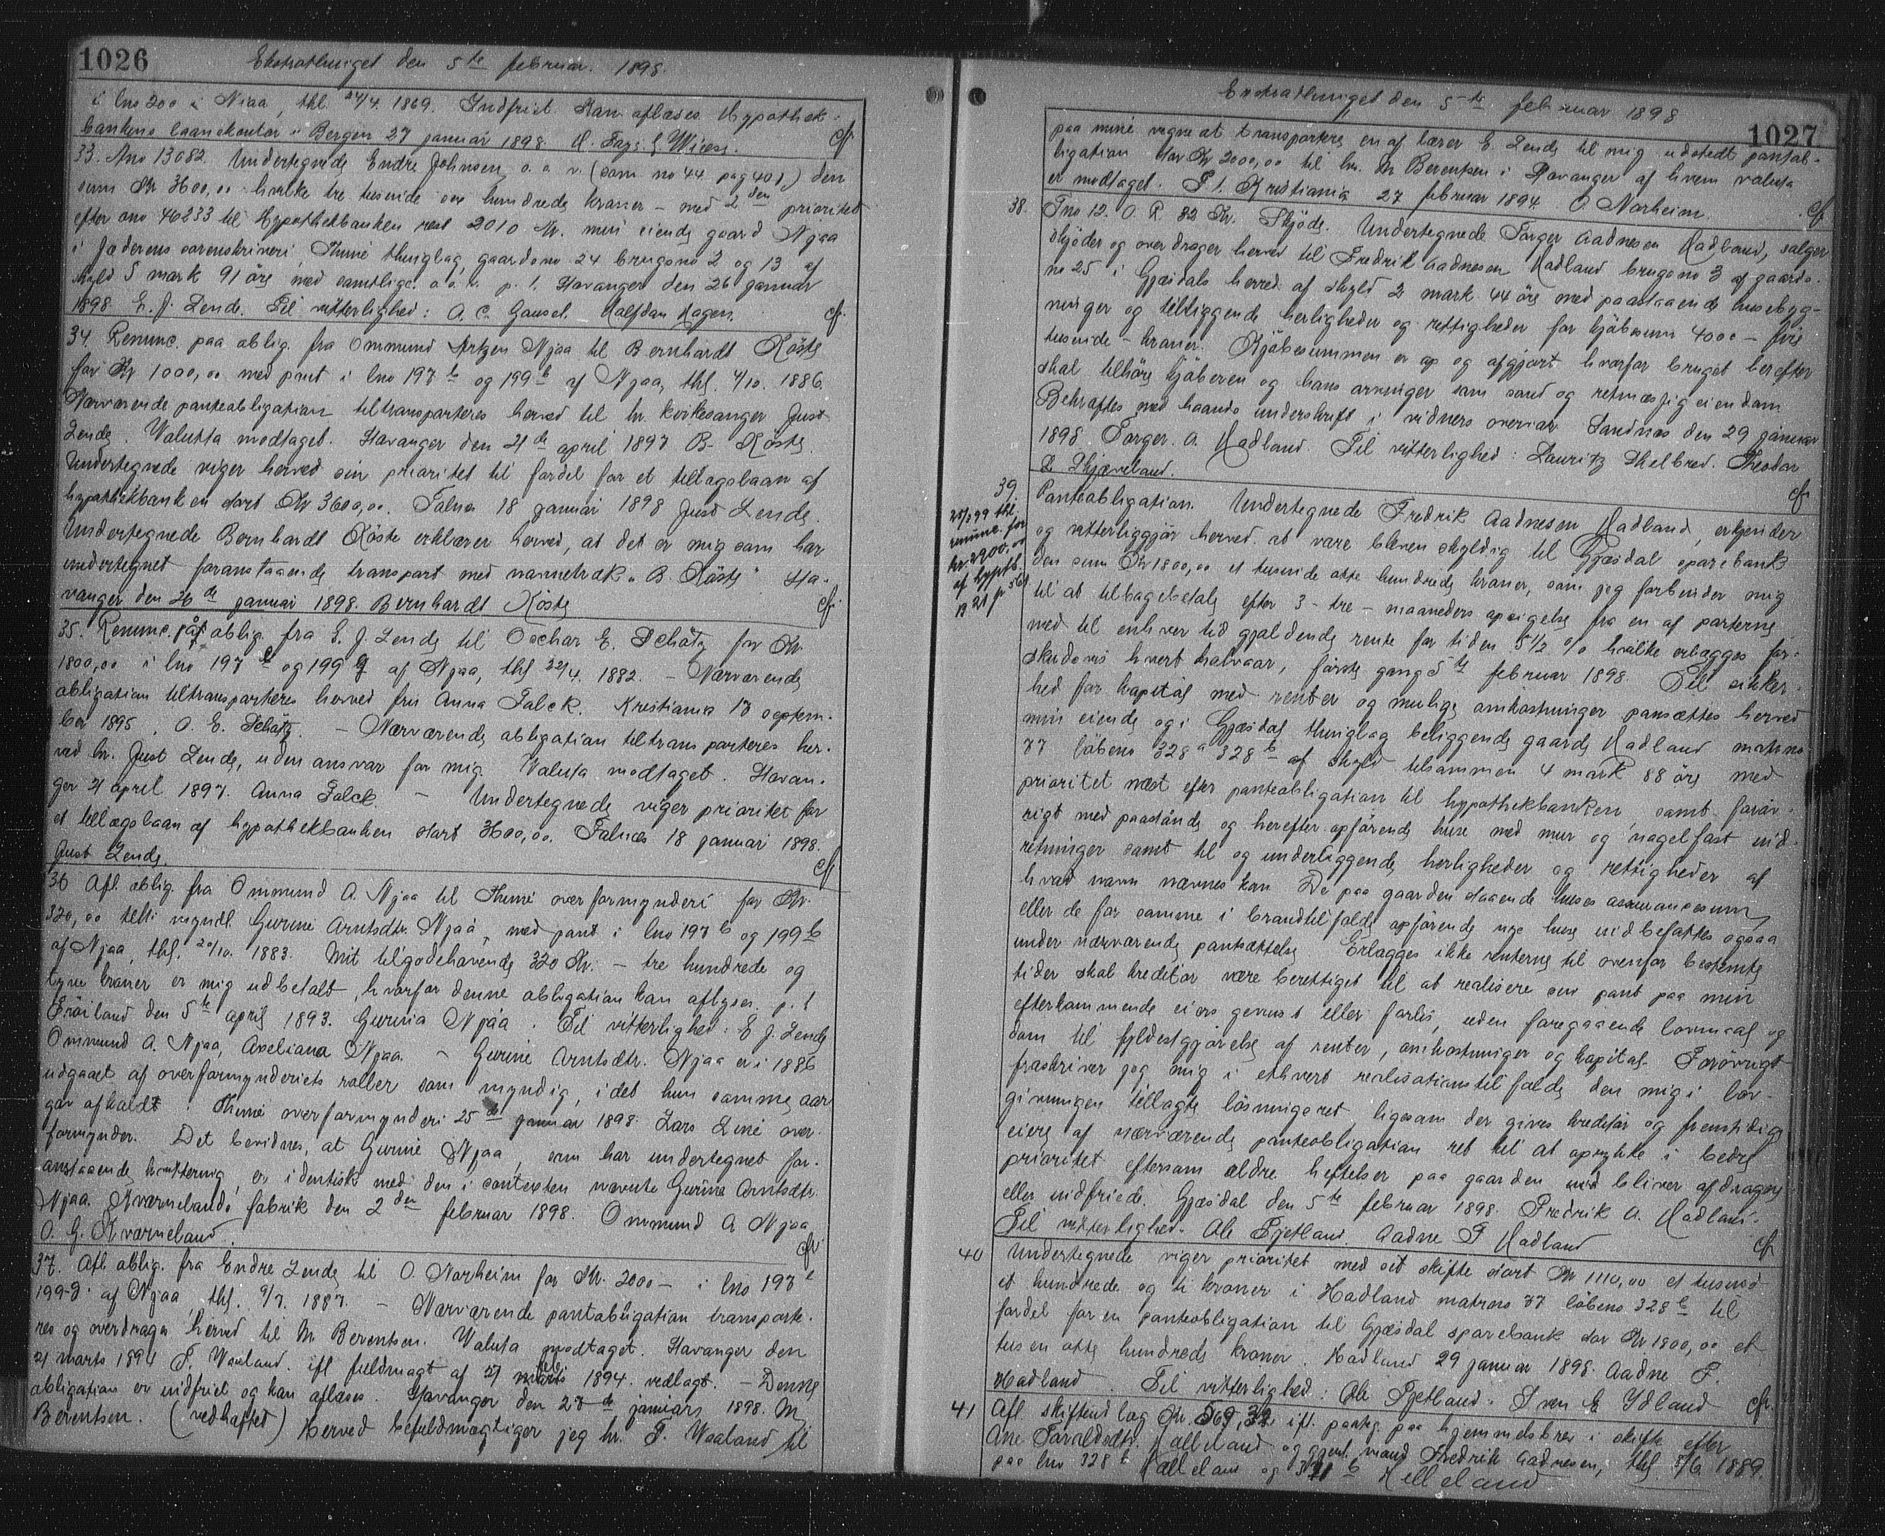 1026
Ekstrathinget den 5te februar 1898.
i lno 200 a Njaa, thl. 24/4 1869. Indfriet Kan aflæses Hypothek-
bankens laanekontor i Bergen 27 januar 1898. cf.
33. Ano 13082. Undertegnede Endre Johnsen o. s. v. (som no 44 pag 401) den
sum Kr 3600,00 hvilke tre tusinde sex hundrede kroner – med 2den prioritet
efter ano 40233 til Hypothekbanken rest 2010 Kr. min eiende gaard Njaa
i Jæderens sorenskriveri, Thime thinglag, gaardsno 24 brugsno 2 og 13 af
skyld 5 mark 91 öre med samtlige o. s. v. p. t. Stavanger den 26 januar
1898 E. J. Lende. Til vitterlighed: A. C. Gausel. Halfdan Hagen. cf.
34. Renunc. paa oblig. fra Ommund Artzen Njaa til Bernhardt Köste
for Kr 1000,00 med pant i lno 197 b og 199 b af Njaa, thl. 4/10. 1886.
Nærværende panteobligation tiltransporteres herved til hr. kirkesanger Just
Lende. Valuta modtaget. Stavanger den 21de april 1897 B. Köste.
Undertegnede viger herved sin prioritet til fordel for et tillægslaan af
hypothekbanken stort Kr 3600,00. Falnes 18 januar 1898 Just Lende.
Undertegnede Bernhardt Köste erklærer herved, at det er mig som har
undertegnet foranstaaende transport med navnetræk "B Köste" Sta-
vanger den 26de januar 1898. Bernhardt Köste cf.
35. Renunc. på oblig. fra E. J. Lende til Oschar E. Schötz for Kr
1800,00 i lno 197 e og 199 g af Njaa, thl 22/4. 1882. – Nærværende
obligation tiltransporteres herved fru Anna Falck. Kristiania 17 septem-
ber 1895. O. E. Schötz. – Nærværende obligation tiltransporteres her-
ved hr. Just Lende, uden ansvar for mig. Valuta modtaget. Stavan-
ger 21 april 1897. Anna Falck. – Undertegnede viger prioritet for
et tillægslaan af hypothekbanken stort 3600,00. Falnes 18 januar 1898.
Just Lende. cf
36 Afl. oblig fra Ommund A. Njaa til Thime overformynderi for Kr.
320,00 myndl. Gurine Arntsdtr. Njaa, med pant i lno 197 b og 199 b
af Njaa, thl. 20/10. 1883. Mit tilgodehavende 320 Kr. – tre hundrede og
tyve kroner er mig udbetalt, hvorfor denne obligation kan aflyses. p. t
Fröiland den 5te april 1893. Gurina Njåa. Til vitterlighed: E. J. Lende
Ommund A. Njaa, Axeliana Njaa. – Gurine Arntsdtr. Njaa er i 1886
udgaaet af overformynderiets ruller som myndig, idet hun samme aar
gav afkald. Thime overformynderi 25de januar 1898. Lars Line over-
formynder. Det bevidnes, at Gurine Njaa, som har undertegnet for-
anstaaende kvittering, er identisk med den i contexten nævnte Gurine Arntsdtr.
Njaa. Kværnelands fabrik den 2den februar 1898. Ommund A. Njaa
O. G. Kværneland. cf.
37. Afl. oblig. fra Endre Lende til O. Norheim for Kr. 2000 – i lno 197
199 af Njaa, thl. 9/7. 1887. – Nærværende pantobligation transporte-
res og overdrages herved til M Berentsen. Valuta modtaget. Stavanger den
21 marts 1894 T. Waaland. ifl fuldmagt af 27 1894. vedlagt. – Denne
obligation er indfriet og kan aflæses. Stavanger den 27de januar 1898. M
Berentsen. (vedhæftet) Herved befuldmægtiger jeg hr. T. Waaland til
Ekstrathinget den 5te februar 1898
1027
paa mine vegne at transportere en af lærer E. Lende til mig udstedt pantob-
ligation stor Kr 2000,00 til hr. M Berentsen i Stavanger af hvem valuta
er modtaget. P. t. Kristiania 27 februar 1894. O Norheim. cf
38. Tno 12. O. P. 82 Kr. Skjöde. Undertegnede Torger Aadnesen Hadland, sælger
skjöder og overdrager herved til Fredrik Aadnesen Hadland brugsno 3 af gaards-
no 25 i Gjæsdals herred af skyld 2 mark 44 öre med paastaaende husebyg-
ninger og tilliggende herligheder og rettigheder for kjöbesum 4000 – fire
tusende – kroner. Kjöbesummen er op og afgjort hvorfor bruget herefter
skal tilhöre kjöberen og hans arvinger som sand og retmæssig eiendom
Bekræftes med haands underskrift i vidners overvær Sandnes den 29 januar
1898 Torger. A. Hadland. Til vitterlighed: Lauritz Skelbred. Theodor
Skjæveland. cf
39.
thl.
renunc. for
kr. 2900.00
af hypth.
B 21 p 561
Panteobligation. Undertegnede Fredrik Aadnesen Hadland, erkjender
og vitterliggjör herved at være bleven skyldig til Gjæsdal sparebank
den sum Kr 1800,00 et tusende otte hundrede kroner, som jeg forbinder mig
til at tilbagebetale efter 3 – tre – maaneders opsigelse fra en af parterne
med til enhver tid gjældende rente for tiden 5 1/2 % hvilke erlægges for-
skudsvis hvert halvaar, förste gang 5te februar 1898. Til sikker-
hed for kapital med renter og mulige omkostninger pansættes herved
min eiende og i Gjæsdal thinglag beliggende gaard Hadland matrno
77 löbeno 328 a 328 b af skyld tilsammen 4 mark 88 öre med
prioritet næst efter panteobligation til hypothekbanken, samt foröv-
rigt med paastående og herefter opförende huse med mur og nagelfast ind-
retninger samt til og underliggende herligheder og rettigheder af
hvad navn nævnes kan. De paa gaarden staaende huses assurancesum
eller de for samme i brandtilfælde opförende nye huse indbefattes ogsaa
under nærværende pantsættelse. Erlægges ikke renterne til ovenfor bestemte
tider skal kreditor være berettiget til at realisere sin pant paa min
efterkommende eiers gevinst eller forlis, uden foregaaende lovmaal og
dom til fyldestgjörelse af renter, omkostninger og kapital. Forövrigt
fraskriver jeg mig i ethvert realisationstilfælde den mig i lov-
givningen tillagte lösningsret ligesom der gives kreditor og fremtidige
eiere af nærværende panteobligation ret til at oprykke i bedre
prioritet eftersom ældre heftelser paa gaarden bliver afdragne
eller indfriede. Gjæsdal den 5te februar 1898. Fredrik A. Hadland.
Til vitterlighed. Ole Fjetland. Aadne T Hadland cf
40 Undertegnede viger prioritet med sit skifte stort Kr 1110,00 et tusend
et hundrede og ti kroner i Hadland matrno 77 löbeno 328 b til
fordel for en panteobligation til Gjæsdal sparebank stor Kr 1800,00 et
tusen otte hundrede kroner. Hadland 29 januar 1898. Aadne T.
Hadland. Til vitterlighed: Ole Fjetland. Sven E Ydland cf.
41 Afl. skifteudlæg Kr. 569,32 ifl. paateg. paa hjemmelsbrev i skifte efter
Ane Taraldsdtr. Hælleland og gjenl. mand Fredrik Aadnesen, thl. 8/6 1889.
paa lno 328 b Hælleland og b Helleland